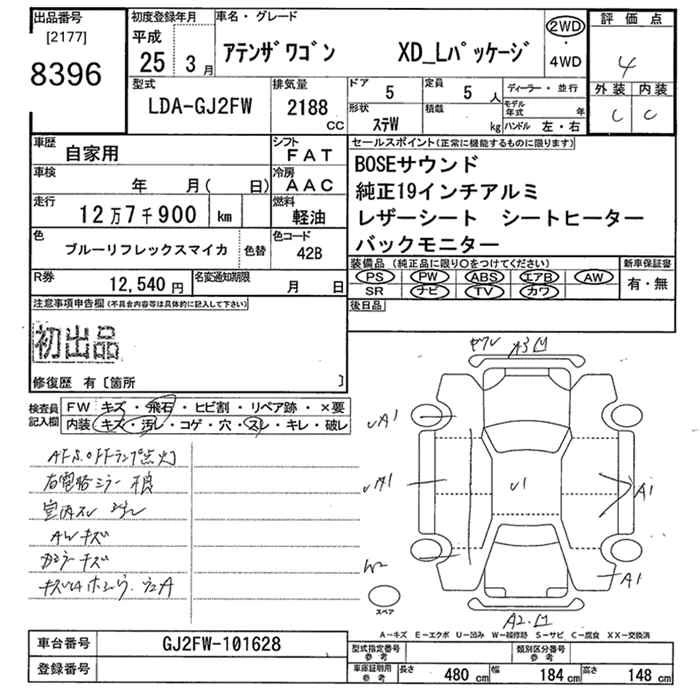 出品番号
[2177]
8396
初度登録年月
平成
25 3月
車名・グレード
アテンザワゴン XD_Lパッケージ
2WD
・
4WD
評価点
4
外装 内装
C C
型式
LDA-GJ2FW
排気量
2188
CC
ドア
5
定員
5人
形状
ステW
積載
kg
ディーラー・並行
モデル年式 年式
ハンドル 左・右
車歴
自家用
シフト
FAT
車検
年 月( 日)
冷房
AAC
走行
12万7千900 km
燃料
軽油
色
ブルーリフレックスマイカ
色替
色コード
42B
R券
12,540円
名変通知期限
月 日
セールスポイント(正常に機能するものに限ります)
BOSEサウンド
純正19インチアルミ
レザーシート シートヒーター
バックモニター
装備品(純正品に限り○をつけてください)
PS PW ABS エアB AW
SR ナビ TV カワ
新車保証書
有・無
後日品
注意事項申告欄(不具合内容等は具体的に記入して下さい)
初出品
修復歴 有〔箇所 〕
検査員記入欄
FW キズ・飛石・ヒビ割・リペア跡・×要
内装 キズ・汚レ・コゲ・穴・スレ・キレ・破レ
右電格ミラー不良
AWキズ
A1
U1
A1
A1
W
スペア
A-キズ E-エクボ U-凹み W-補修跡 S-サビ C-腐食 XX-交換済
車台番号
GJ2FW-101628
登録番号
型式指定番号
参考
類別区分番号
参考
車庫証明用
参考
長さ 480cm 幅 184cm 高さ 148cm